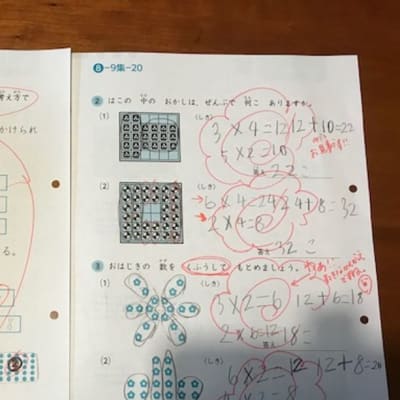 8-9集-20
考え方で
かけられ
る。
2 はこの 中の おかしは、ぜんぶで 何こ ありますか。
(1)
(しき)
3×4=12 12+10=22
5×2=10
答え 22こ
(2)
(しき)
6×4=24 24+8=32
2×4=8
答え 32こ
3 おはじきの 数を くふうして もとめましょう。
(1)
(しき)
3×2=6 12+6=18
2×6=12
答え 18こ
(2)
(しき)
6×2=12 12+8=20